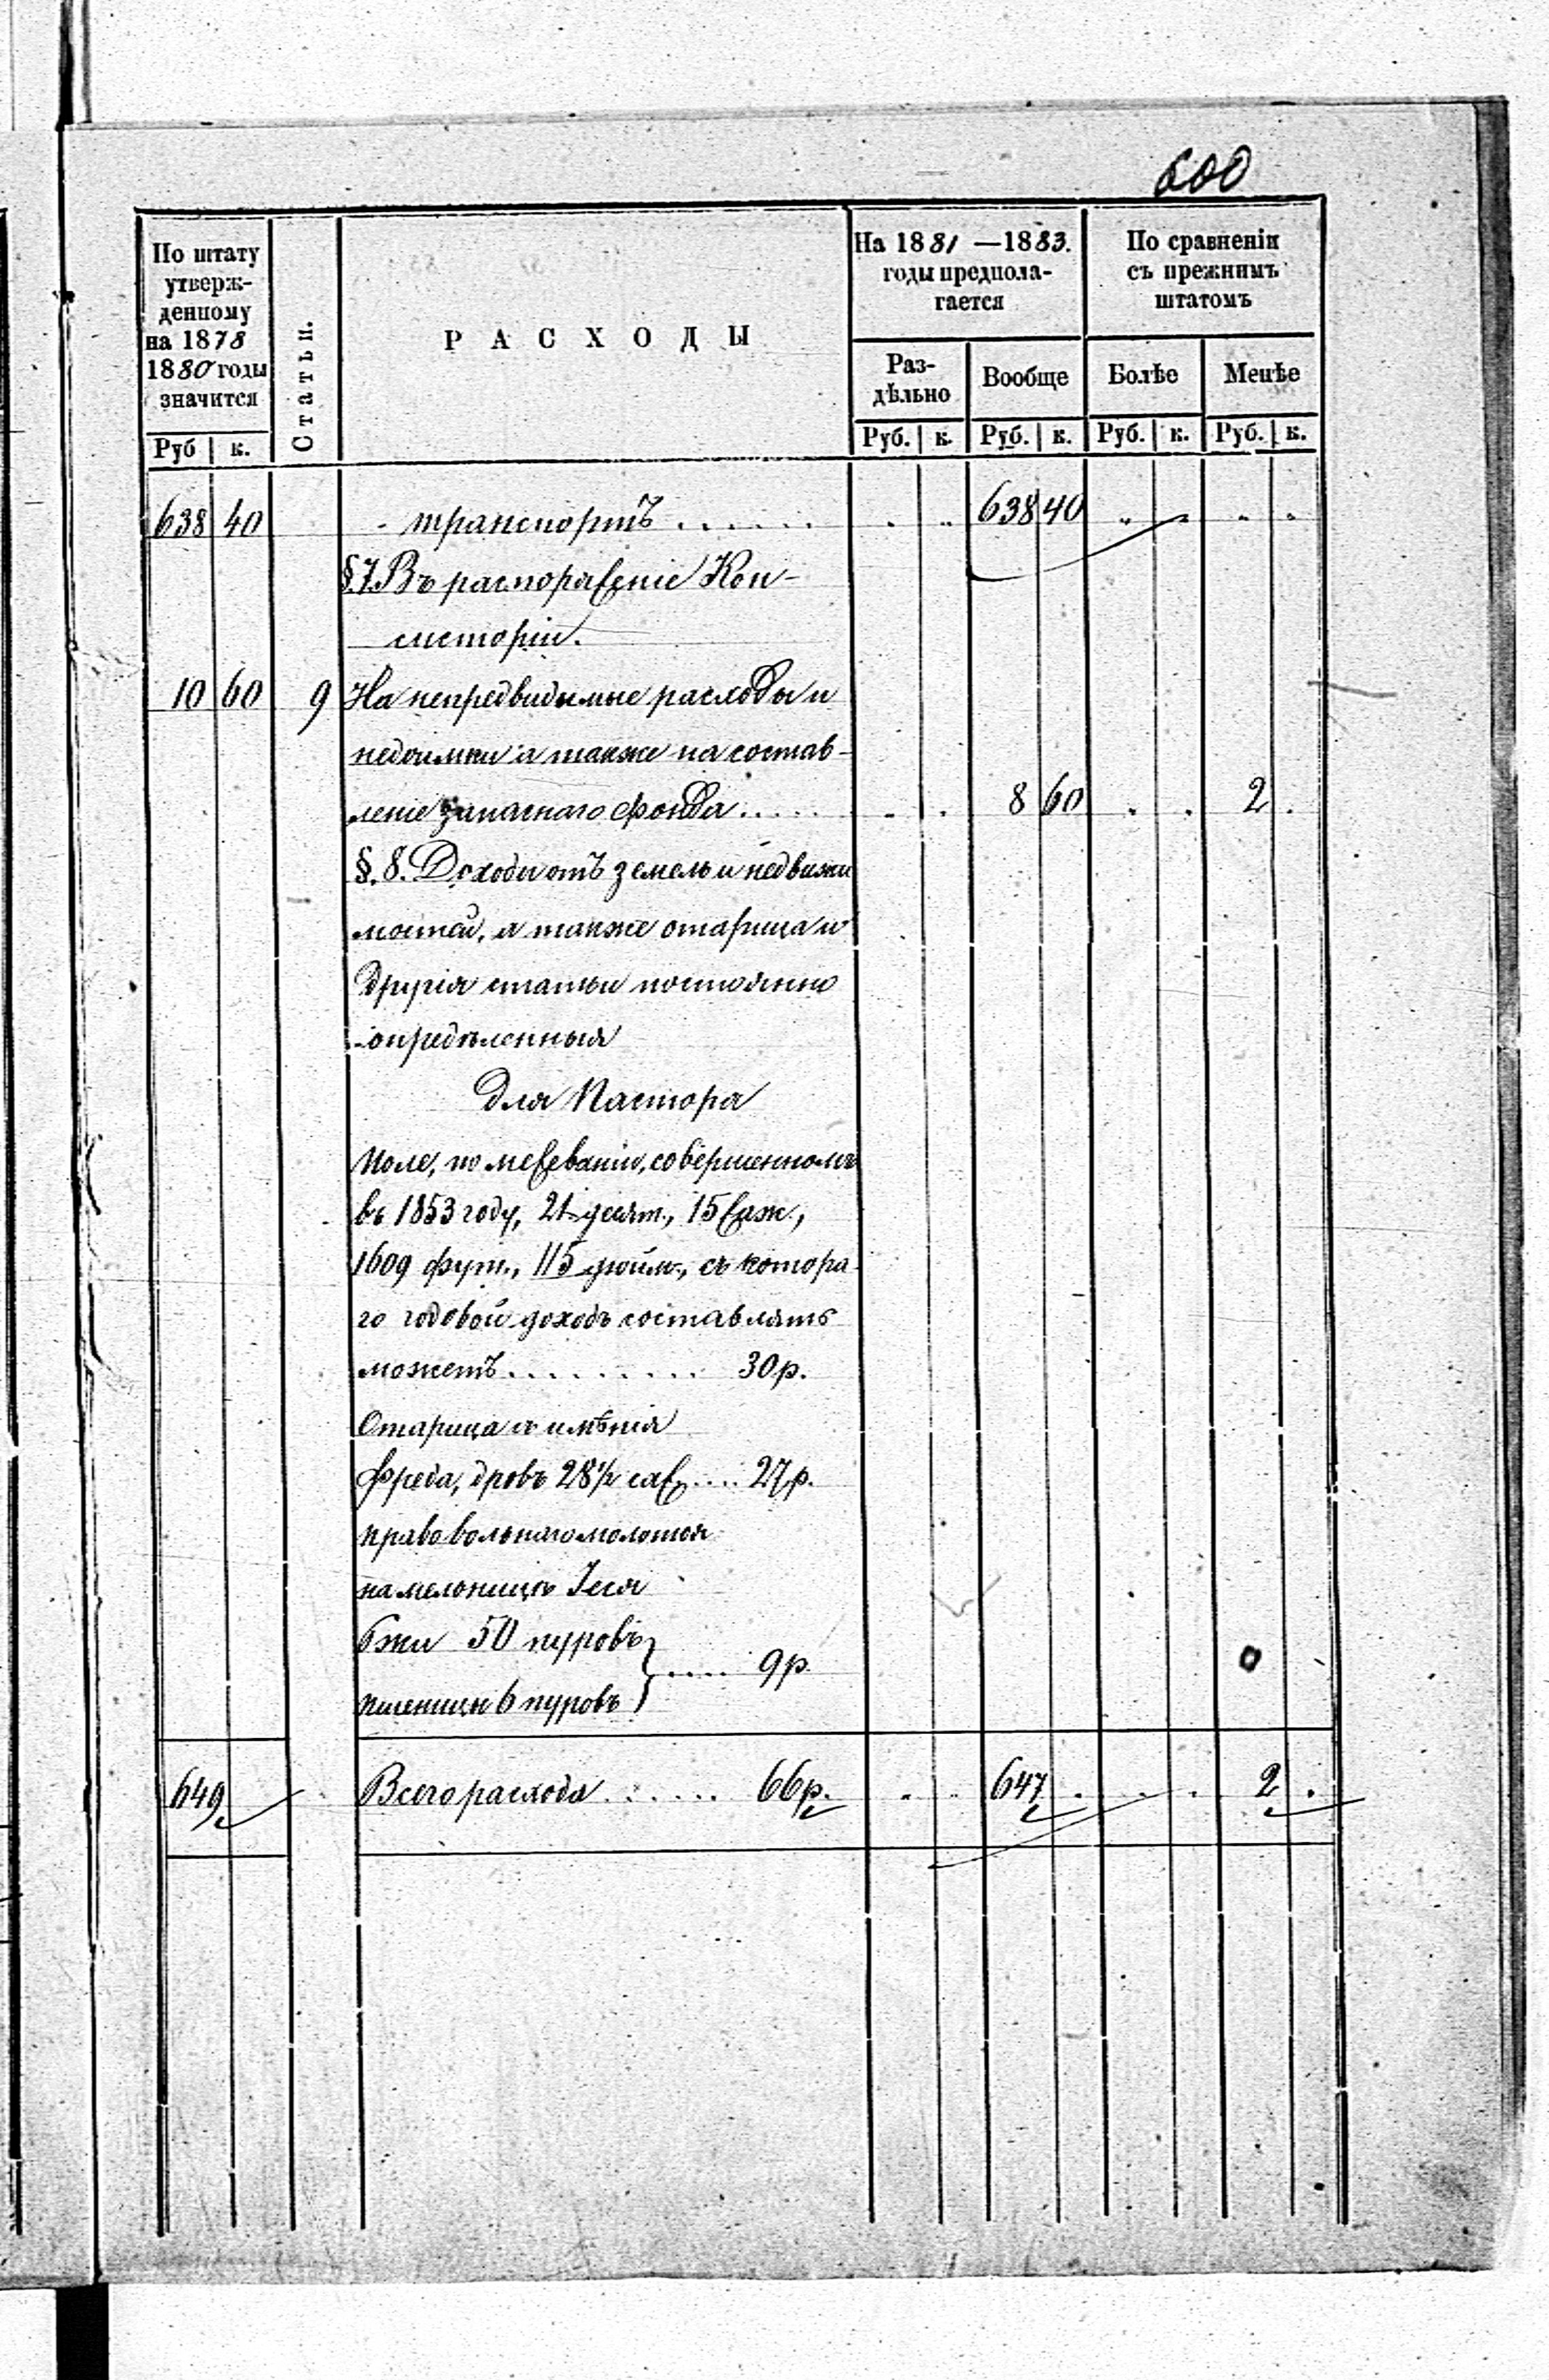 600
По штату
утверж-
денному
на 1878
1880 годы
значится
Статьи.
РАСХОДЫ
На 1881 —1883.
годы предпола-
гается
По сравненiи
съ прежнимъ
штатомъ
Раз-
дѣльно
Вообще
Болѣе
Менѣе
Руб к.
Руб. к. Руб. к. Руб. к. Руб. к.
638 40 транспортъ . . . . . . 638 40 „ „ „ „
§.7. Въ распоряженiе Кон-
систорiи.
10 60 9 На непредвидимые расходы и
недоимки а также на состав-
ленiе запаснаго фонда . . . . . 8 60 . . 2 .
§. 8. Доходы отъ земель и недвижи
мостей, а также отарица и
другiя статьи постоянно
опредѣленныя
Для Пастора
Поле, по межеванiю, совершенному
въ 1853 году, 21 десят., 15 саж.,
1609 фут., 115 дюйм., съ котора-
го годовой доходъ составлять
можетъ . . . . . . . . . 30 р.
Отарица съ имѣнiя
Фреда, дровъ 28½ саж. . . . . 27 р.
право вольнаго молотья
на мельницѣ Iеся
ржи 50 пуровъ
} . . . . . 9 р.
пшеницы 6 пуровъ
649 Всего расхода . . . . . . 66 р. . . 647 . . . 2 .